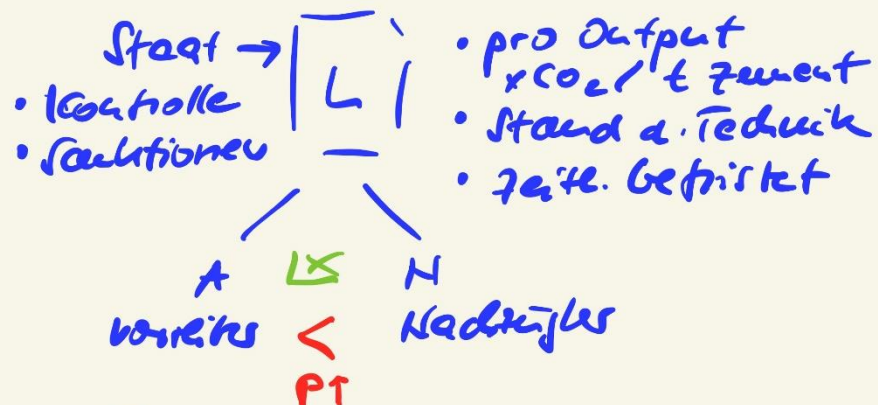 Staat →
• Kontrolle
• Sanktionen
L
• pro Output
x CO₂ / t Zement
• Stand d. Technik
• zeitl. befristet
A
N
Vorreiter
<
Nachzügler
P↑